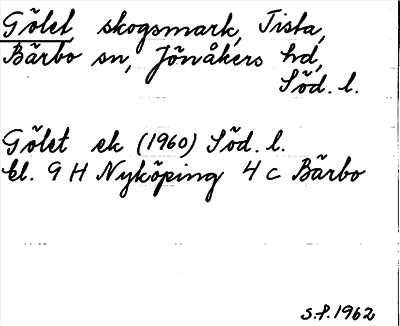 Gölet, skogsmark, Tista,
Bärbo sn, Jönåkers hd,
Söd. l.
Gölet ek (1960) Söd. l.
bl. 9 H Nyköping 4 c Bärbo
S.P. 1962